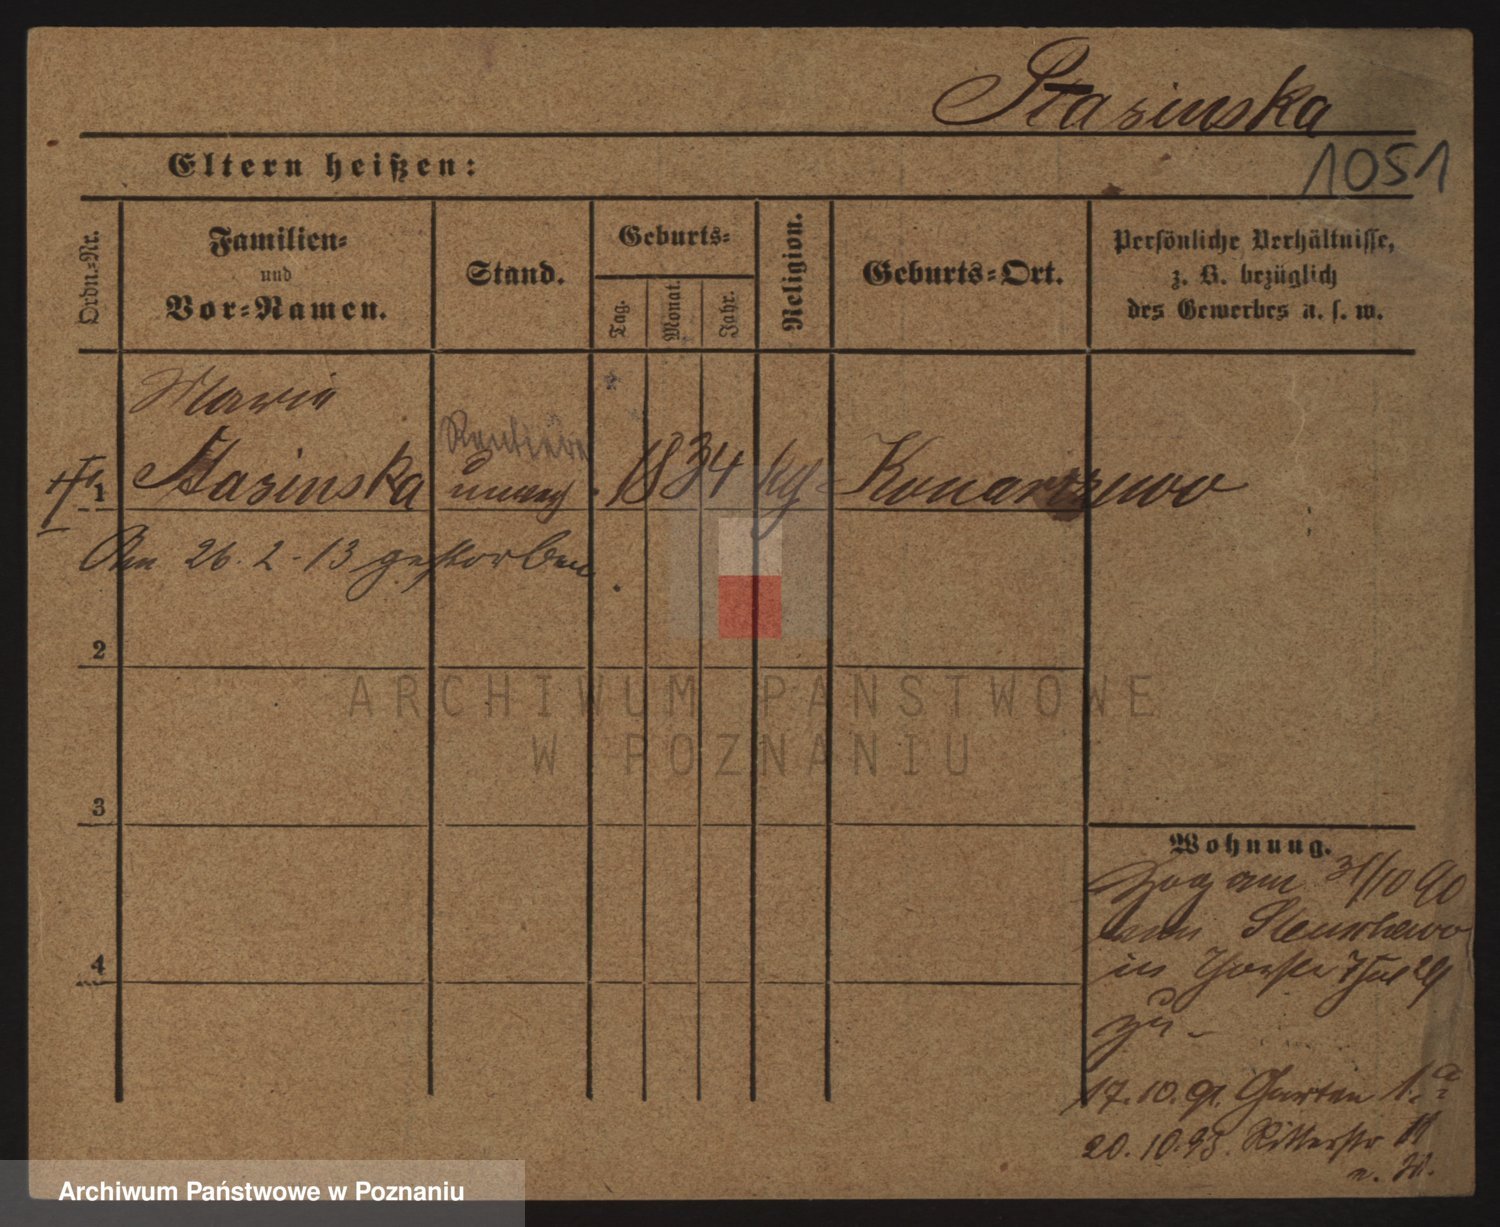 Stasinska
1051
Eltern heißen:
Ordn.-Nr.
Familien-
und
Vor-Namen.
Stand.
Geburts-
Tag.
Monat.
Jahr.
Religion.
Geburts-Ort.
Persönliche Verhältnisse,
z. B. bezüglich
des Gewerbes u. s. w.
Marie
Rentiere
1 Stasinska unverh. 1834 kg Konarzewo
Am 26. 2 - 13 gestorben.
2
ARCHIWUM PAŃSTWOWE
W POZNANIU
3
Wohnung.
Zog am 31/10 90
von
4
in
zu -
17. 10. 91. Garten 1.a
20. 10. 93. Ritterstr 11
Archiwum Państwowe w Poznaniu